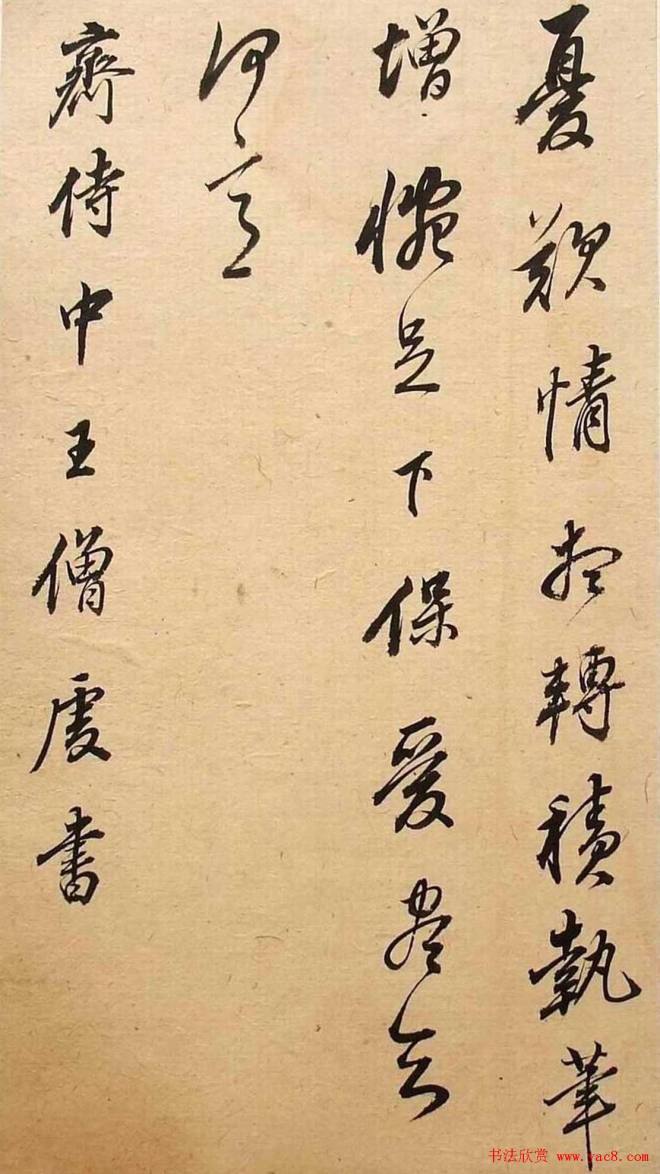 憂歎情想轉積執筆
增惋足下保愛盡云
何言
齊侍中王僧虔書
书法欣赏 www.yac8.com